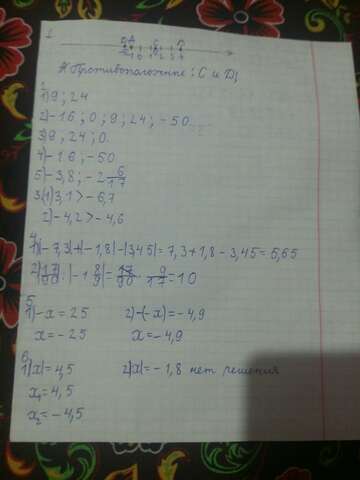 1
* Противоположные: С и D;
2
1) 9; 24
2) -16; 0; 9; 24; -50
3) 9, 24; 0.
4) -16; -50
5) -3,8; -2 6/17
3.(1) 3,1 > -6,7
2) -4,2 > -4,6
4
1) |-7,3|+|-1,8|-|3,45| = 7,3+1,8-3,45 = 5,65
5
1) -x = 25 2) -(-x) = -4,9
x = -25 x = -4,9
6
1) |x| = 4,5 2) |x| = -1,8 нет решения
x₁ = 4,5
x₂ = -4,5